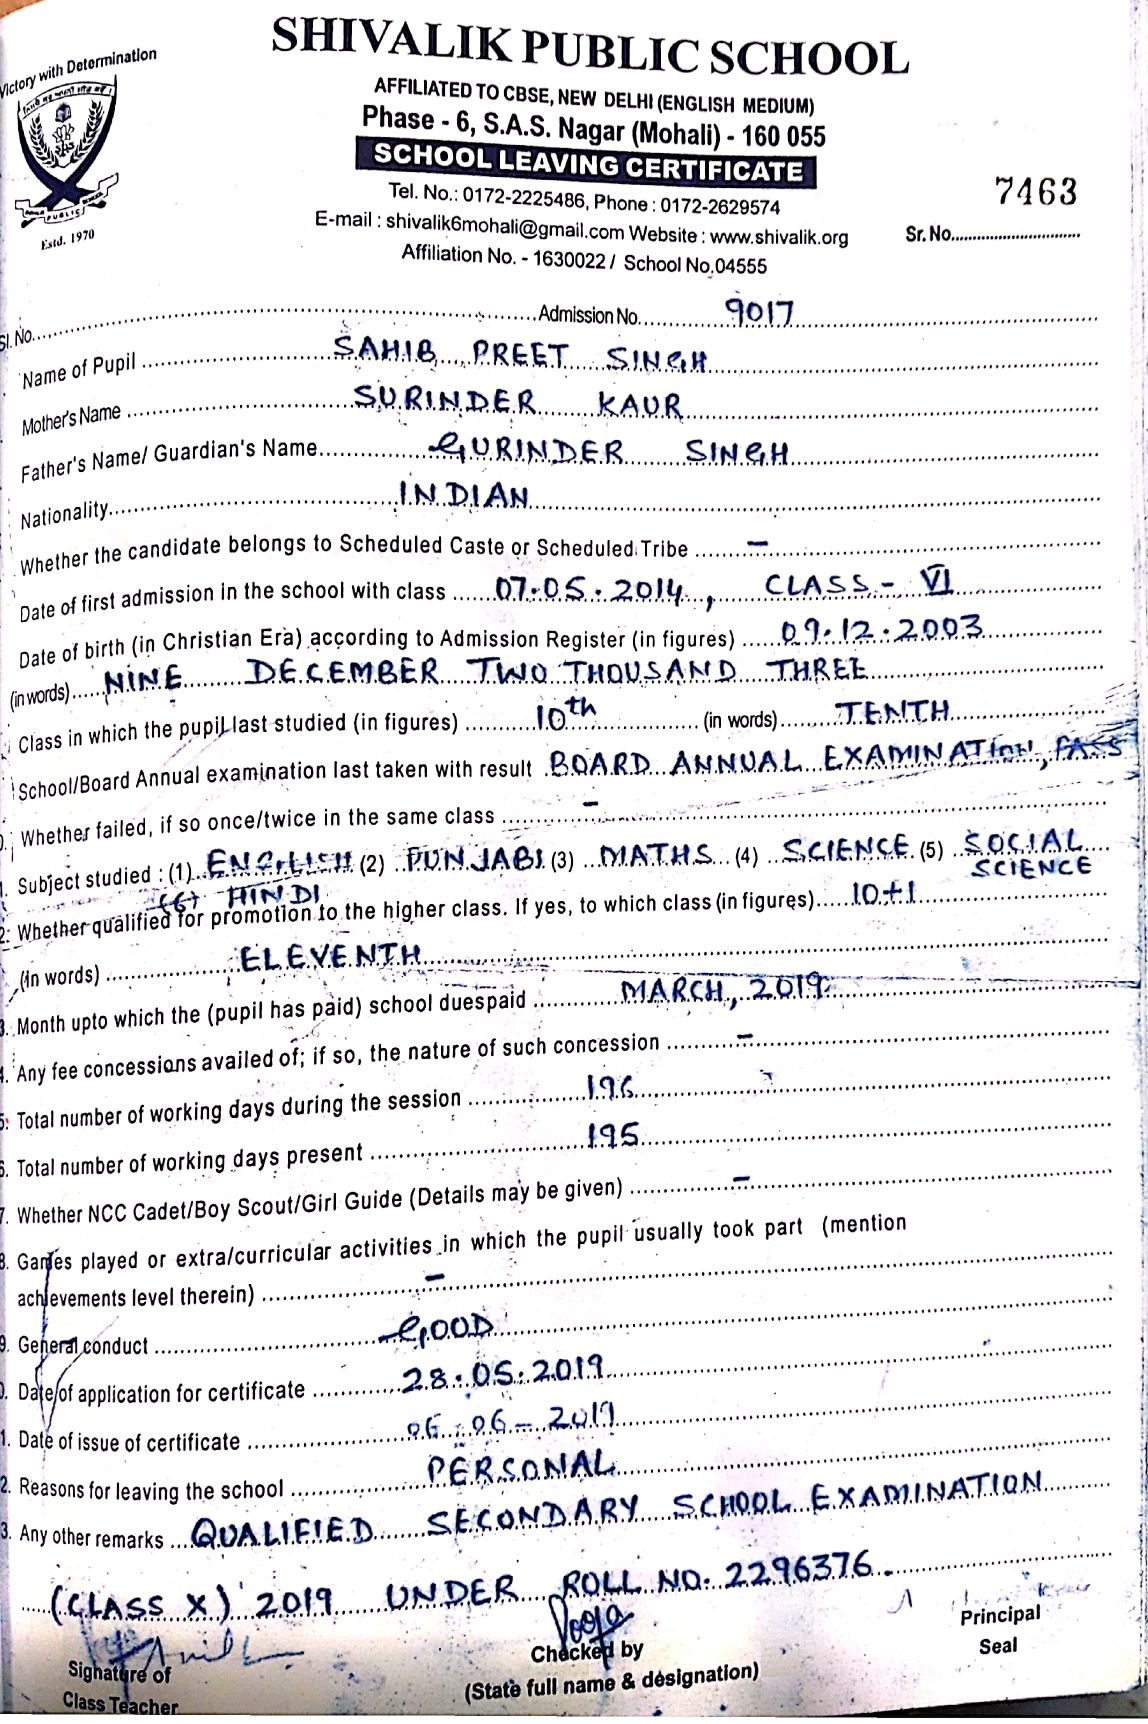 SHIVALIK PUBLIC SCHOOL
Victory with Determination
AFFILIATED TO CBSE, NEW DELHI (ENGLISH MEDIUM)
Phase - 6, S.A.S. Nagar (Mohali) - 160 055
SCHOOL LEAVING CERTIFICATE
Estd. 1970
Tel. No.: 0172-2225486, Phone : 0172-2629574
7463
E-mail : shivalik6mohali@gmail.com Website : www.shivalik.org
Sr. No.
Affiliation No. - 1630022 / School No.04555
Sl. No. Admission No. 9017
Name of Pupil SAHIB PREET SINGH
Mother's Name SURINDER KAUR
Father's Name/ Guardian's Name GURINDER SINGH
Nationality INDIAN
Whether the candidate belongs to Scheduled Caste or Scheduled Tribe –
Date of first admission in the school with class 07.05.2014, CLASS - VI
Date of birth (in Christian Era) according to Admission Register (in figures) 09.12.2003
(in words) NINE DECEMBER TWO THOUSAND THREE
Class in which the pupil last studied (in figures) 10th (in words) TENTH
School/Board Annual examination last taken with result BOARD ANNUAL EXAMINATION, PASS
Whether failed, if so once/twice in the same class –
Subject studied : (1) ENGLISH (2) PUNJABI (3) MATHS (4) SCIENCE (5) SOCIAL SCIENCE
(6) HINDI
2. Whether qualified for promotion to the higher class. If yes, to which class (in figures) 10+1
(in words) ELEVENTH
3. Month upto which the (pupil has paid) school duespaid MARCH, 2019
4. Any fee concessions availed of; if so, the nature of such concession –
5. Total number of working days during the session 196
6. Total number of working days present 195
7. Whether NCC Cadet/Boy Scout/Girl Guide (Details may be given) –
8. Games played or extra/curricular activities in which the pupil usually took part (mention
achievements level therein) –
9. General conduct GOOD
0. Date of application for certificate 28.05.2019
1. Date of issue of certificate 06-06-2019
2. Reasons for leaving the school PERSONAL
3. Any other remarks QUALIFIED SECONDARY SCHOOL EXAMINATION
(CLASS X) 2019 UNDER ROLL NO. 2296376.
Pooja
Signature of
Class Teacher
Checked by
(State full name & designation)
Principal
Seal